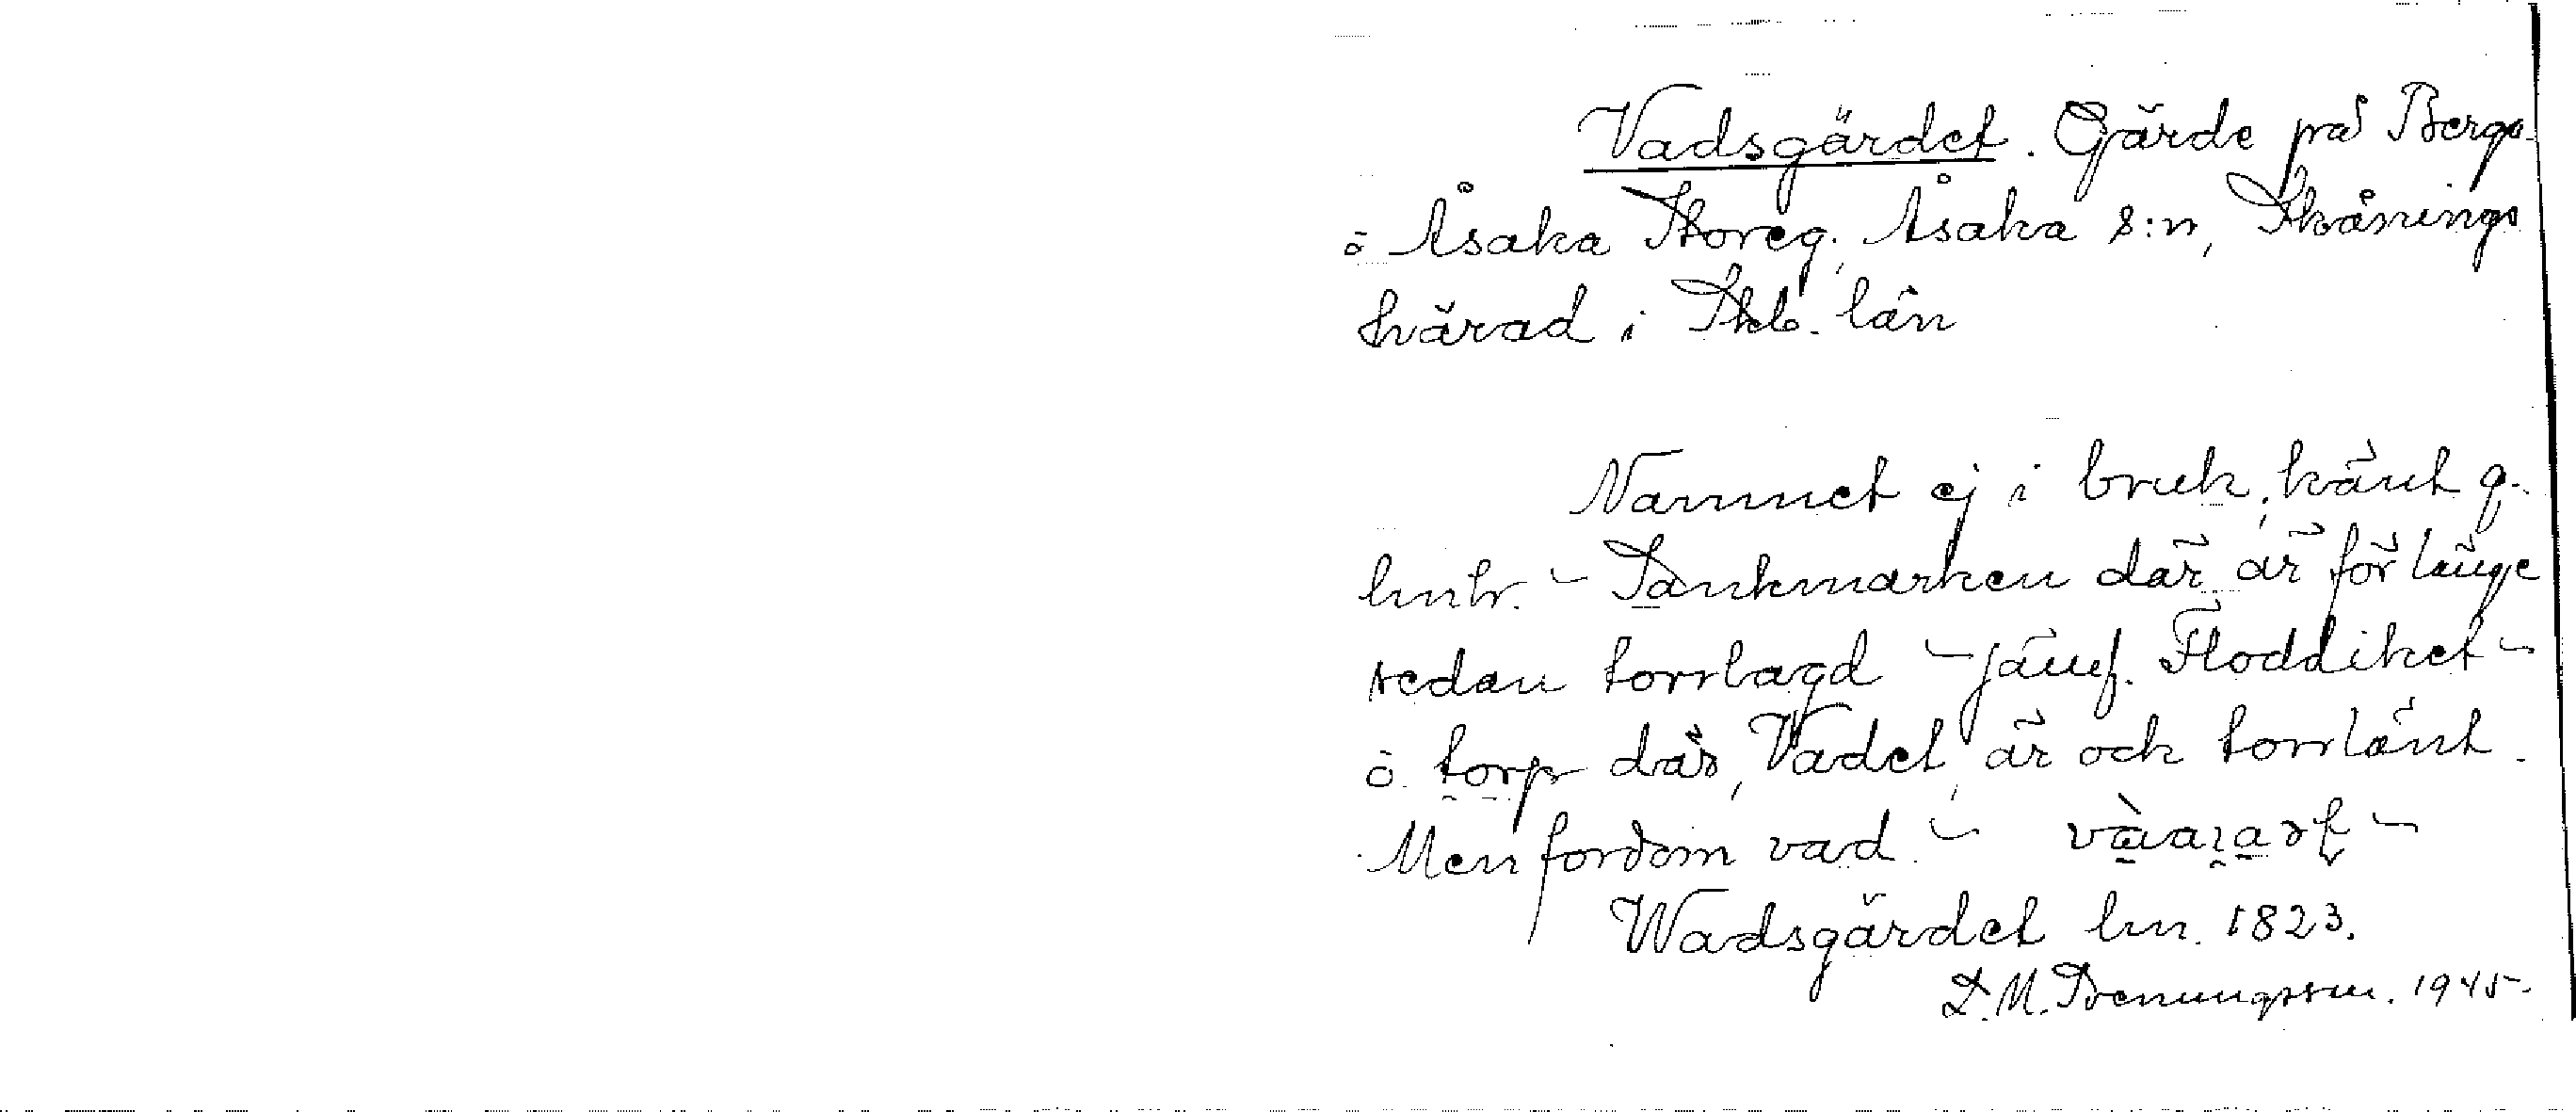 Vadsgärdet. Gärde på Bergs-
o Åsaka Storeg., Åsaka s:n, Skånings
härad i Skb. län
Namnet ej i bruk, känt g.
lmhr. - Sankmarken där är för länge
sedan torrlagd - jämf. Floddiket -
o torp där, Vadet, är och torrlänt.
Men fordom vad. -
Wadsgärdet lm. 1823.
D. M. 1945.